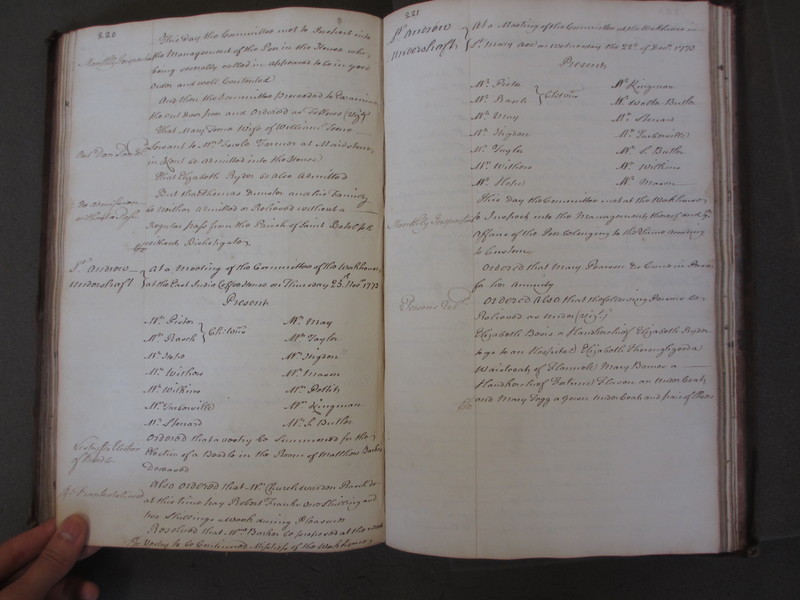 220
This day the Committee met to Inspect into
Monthly Inspection the Management of the Poor in the House who
being severally called in appeared to be in good
order and well Contented
And then the Committee Proceeded to Examine
the out door Poor and ordered as follows (Viz)
That Mary Jones Wife of William Jones
Servant to Mr. Farmer at Maidstone
in Kent be Admitted into the House
That Elizabeth Ryder be also Admitted
But that Thomas Dunster and his Family
No admission without a Pass
be neither Admitted or Relieved without a
Regular Pass from the Parish of Saint Botolph
without Bishopsgate
St. Andrew Undershaft
At a Meeting of the Committee of the Workhouse
at the East India Coffee House on Thursday 25th. Nov. 1773
Present
Mr. Pistor Mr. May
Mr. Rasch Mr. Taylor
Ch:Wns
Mr. Hato Mr. Higden
Mr. Withers Mr. Mason
Mr. Wilkins Mr. Pettit
Mr. Turberville Mr. Kingman
Mr. Stenard Mr. S. Butler
Vestry for Election of Beadle
Ordered that a vestry be Summoned for the
Election of a Beadle in the Room of Matthew Barker
Deceased
Also ordered that Mr. Churchwarden Rasch do
at this time pay Robert Franks one Shilling and
two Shillings a week during Pleasure
Resolved that Mrs. Barker be proposed at the next
Vestry to be Continued Mistress of the Workhouse
221
St. Andrew Undershaft
At a Meeting of the Committee at the Workhouse in
St. Mary Axe on Wednesday the 22d. of Decr. 1773
Present
Mr. Pistor Mr. Kingman
Mr. Rasch Mr. Butler
Ch:Wns
Mr. May Mr. Stenard
Mr. Higden Mr. Turberville
Mr. Taylor Mr. S. Butler
Mr. Withers Mr. Wilkins
Mr. Hato Mr. Mason
This Day the Committee met at the Workhouse
Monthly Inspection
to Inspect into the Management thereof and the
Affairs of the Poor belonging to the same according
to Custom
Ordered that Mary Pearson be
Ordered also that the following Persons be
Relieved as under (Viz)
Elizabeth Davis a Handkerchief Elizabeth Ryder
to go to an Hospital Elizabeth a
Waistcoat of Flannel Mary Barnes a
Handkerchief an under Coat
and Mary Fogg a Gown under Coat and pair of Shoes